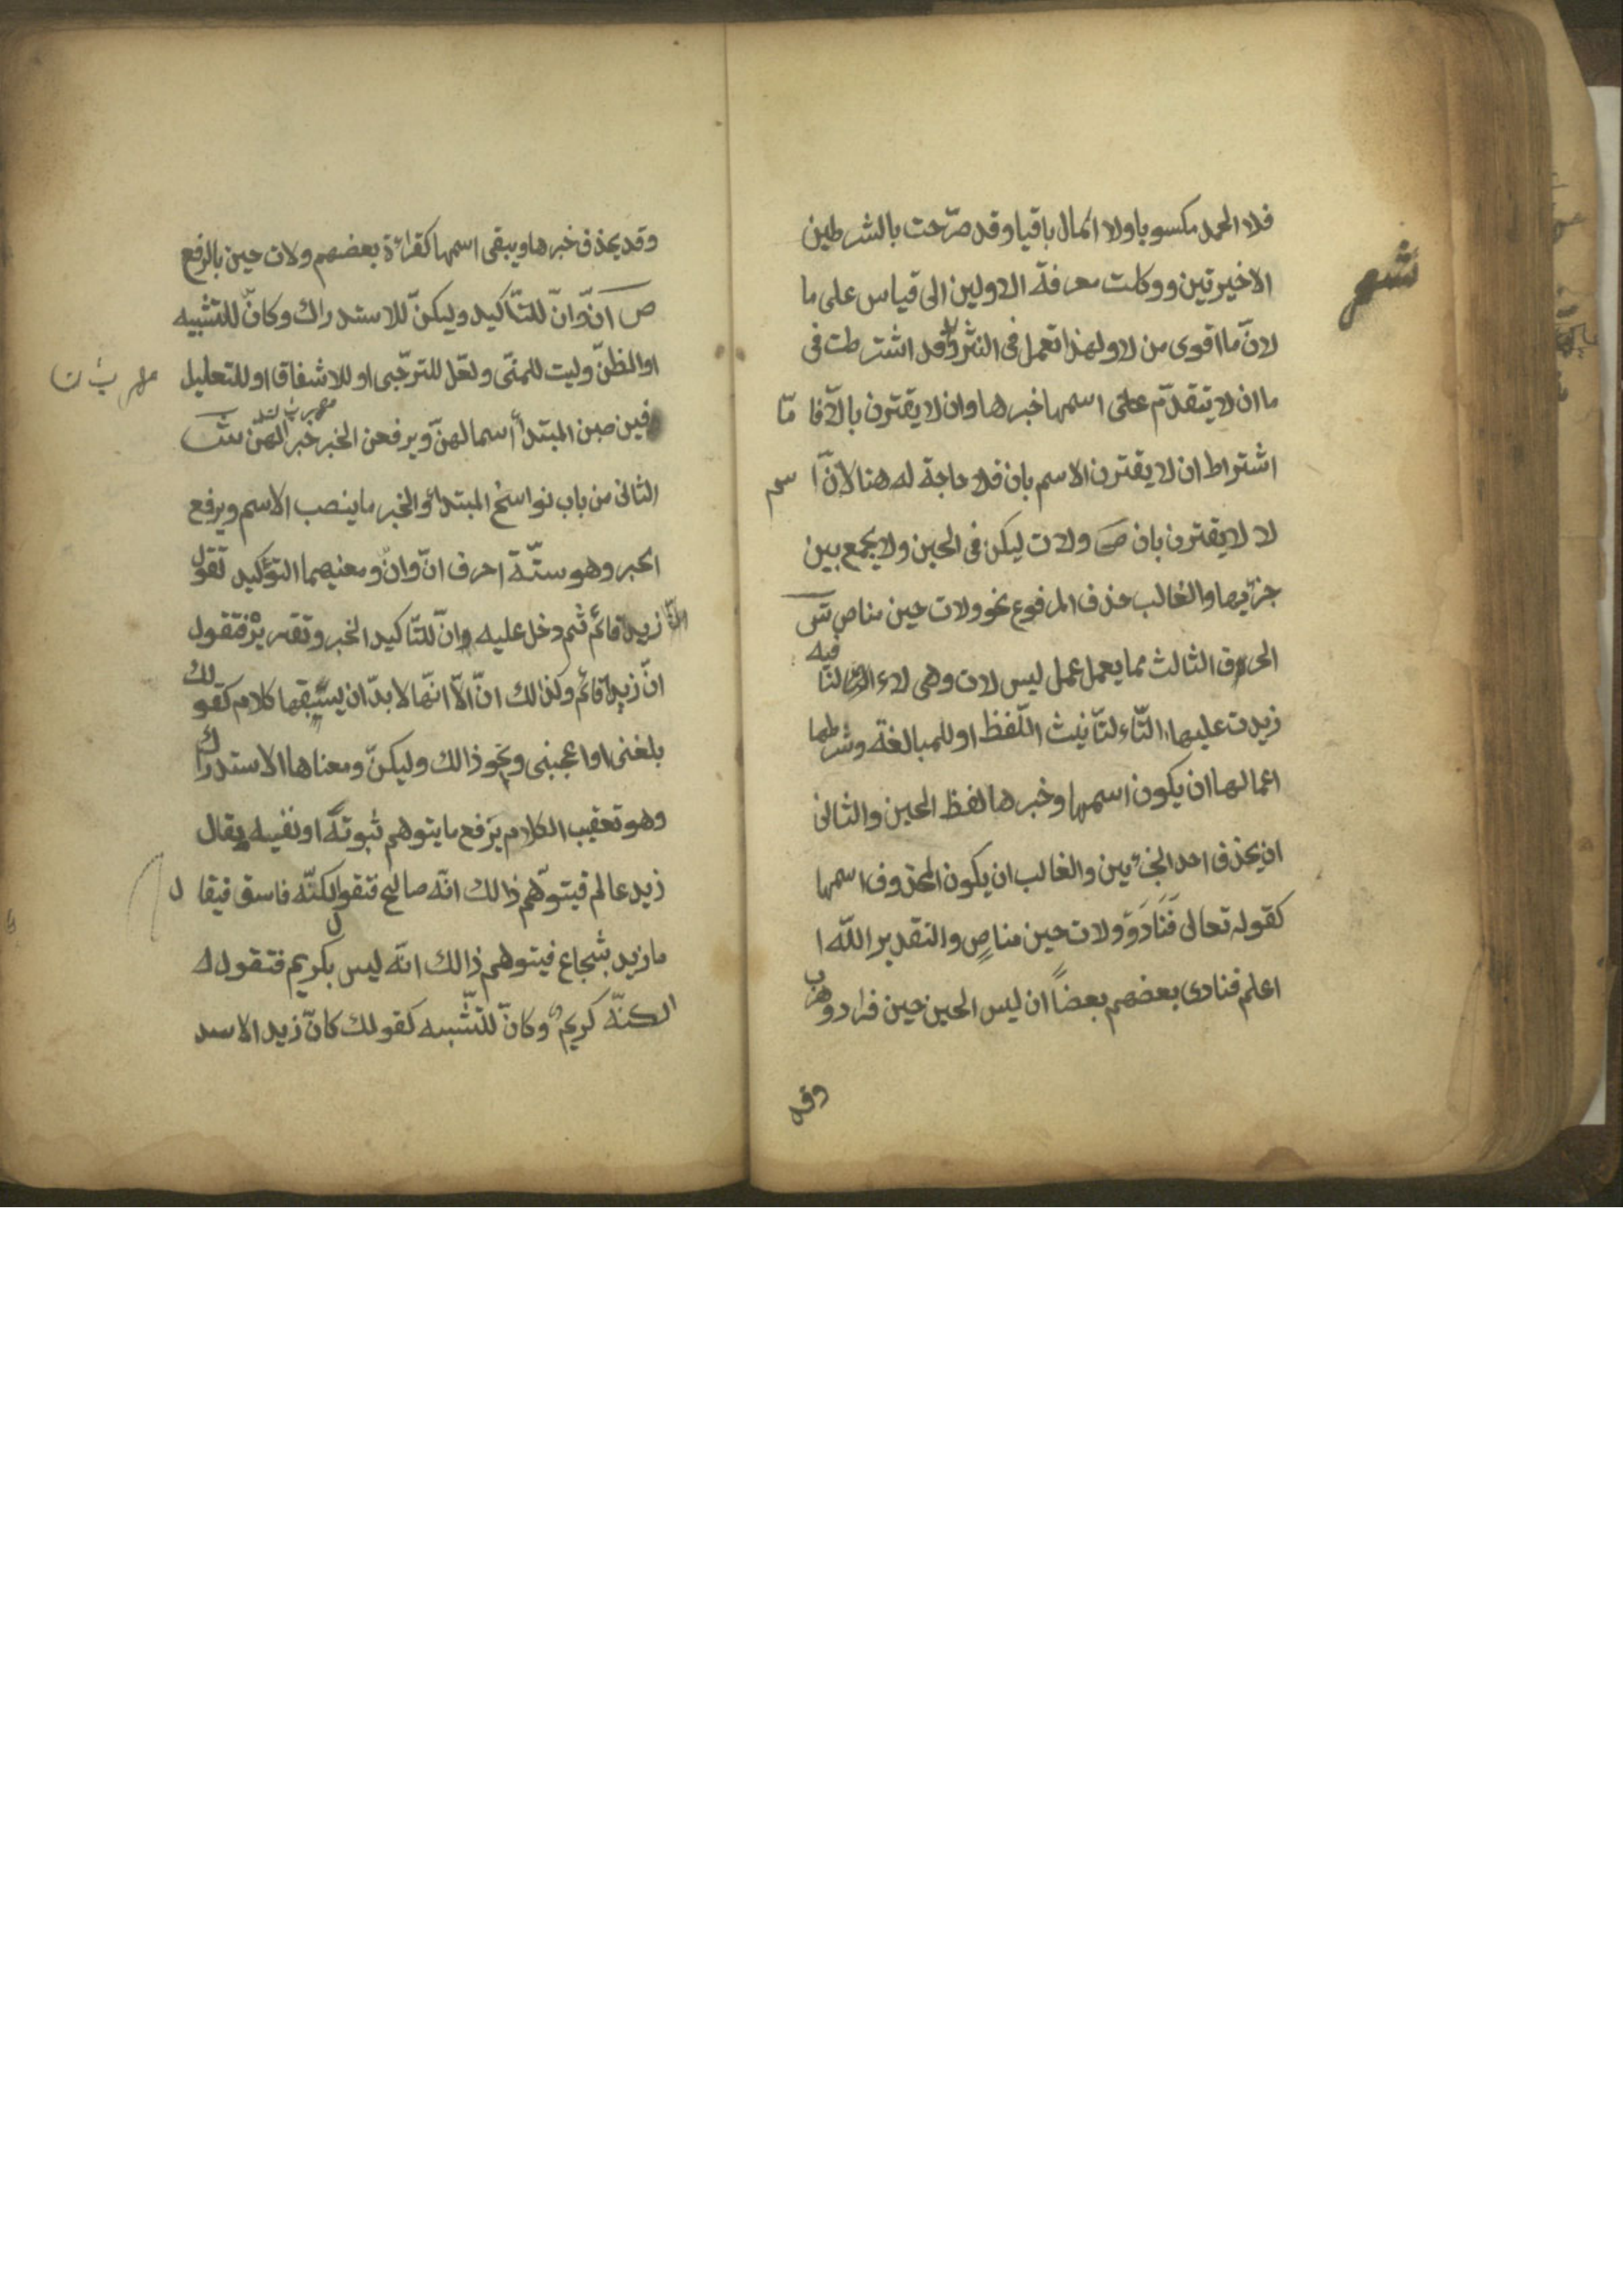 فلا الحمد مكسوبا ولا المال باقيا وقد صرّحت بالشرطين
الاخيرتين ووكلت معرفة الاولين الى قياس على ما
لانّ ما اقوى من لا ولهذا تعمل فى النثر وقد اشترطت فى
ما ان لا يتقدّم على اسمها خبرها وان لا يقترن بالّا فا مّا
اشتراط ان لا يقترن الاسم بان فلا حاجة له هنا لانّ ا سم
لا لا يقترن بان ص ولات ليكن فى الحين ولا يجمع بين
جزئيها والغالب حذف المرفوع نحو ولات حين مناص ش
الحرف الثالث مما يعمل عمل ليس لات وهى لاء النافيه
زيدت عليها التّاء لتأنيث اللّفظ او للمبالغة وشرطها
اعمالها ان يكون اسمها وخبرها لفظ الحين والثانى
ان يحذف احد الجزئين والغالب ان يكون المحذوف اسمها
كقوله تعالى فَنَادَوْ ولات حين مناصٍ والتقدير اللّه ا
اعلم فنادى بعضهم بعضاً ان ليس الحين حين فرار وهرب
وقد
وقد يحذف خبرها ويبقى اسمها كقرائة بعضهم ولات حين بالرفع
ص انّ وانّ للتّاكيد وليكنّ للاستدراك وكانّ للتشبيه
او الظنّ وليت للتمنّى ولعّل للترجّى او للاشفاق او للتعليل
فينصبن المبتدأ أسما لهنّ ويرفعن الخبر خبرا لهنّ ش
الثانى من باب نواسخ المبتدأ والخبر ما ينصب الاسم ويرفع
الخبر وهو ستّة احرف انّ وانّ ومعنيهما التّوكيد تقول
زيد قائم ثم دخل عليه انّ لتّاكيد الخبر وتقريره فتقول
انّ زيدا قائم وكذالك انّ الّا انّها لا بدّ ان يسبقها كلام كقولك
بلغنى او اعجبنى ونحو ذالك وليكنّ ومعناها الاستدراك
وهو تعقيب الكلام برفع ما يتوهم ثبوته او نفيه يقال
زيد عالم فيتوّهم ذالك انّه صالح فتقول لكنّه فاسق فيقا ل
ما زيد بشجاع فيتوهم ذالك انّه ليس بكريم فتقول له
الكنّه كريم وكانّ للتّشبيه كقولك كانّ زيد الاسد